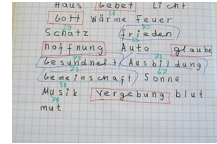 Haus Gebet Licht
Gott Wärme Feuer
Schatz Frieden
hoffnung Auto glaube
Gesundheit Ausbildung
Gemeinschaft Sonne
Musik Vergebung blut
mut